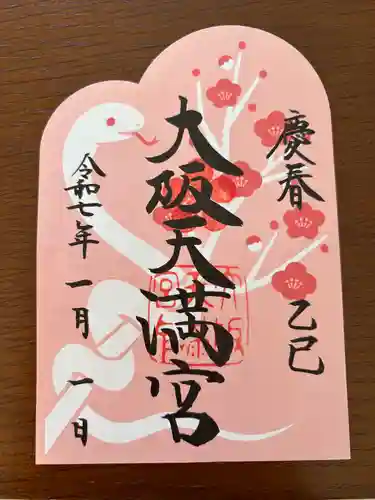 慶春
乙巳
大阪天満宮
令和七年
一月
一日